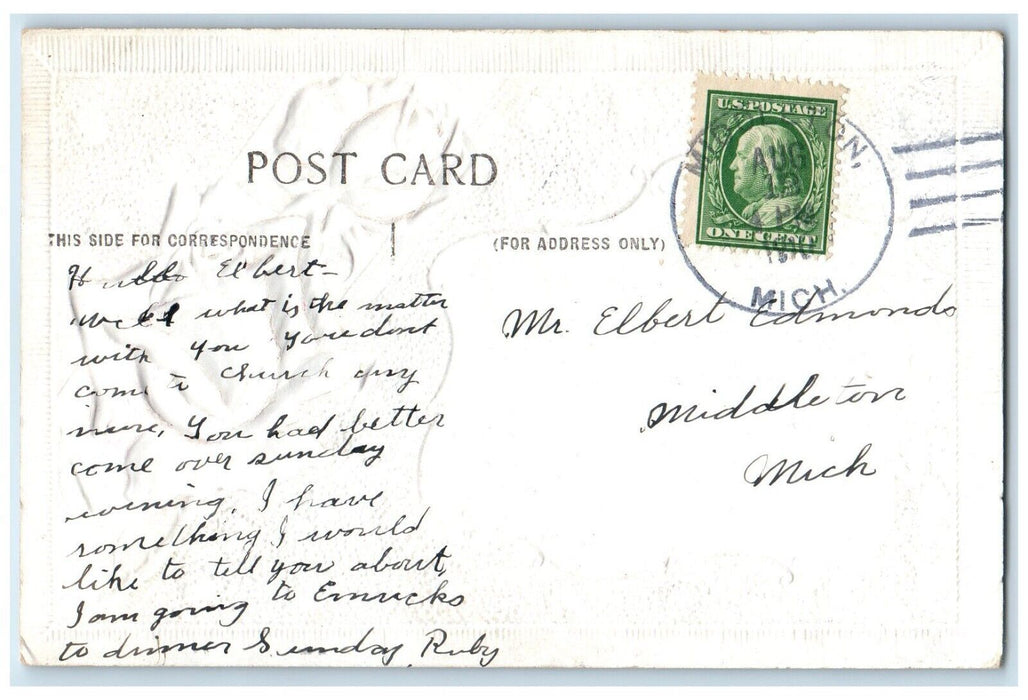 POST CARD
U.S. POSTAGE
ONE CENT
AUG
MICH.
THIS SIDE FOR CORRESPONDENCE
(FOR ADDRESS ONLY)
Hulllo Elbert-
Well what is the matter
with you you dont
come to church any
more, You had better
come over sunday
evening, I have
something I would
like to tell you about,
I am going to
to dinner Sunday Ruby
Mr. Elbert Edmonds
Middleton
Mich